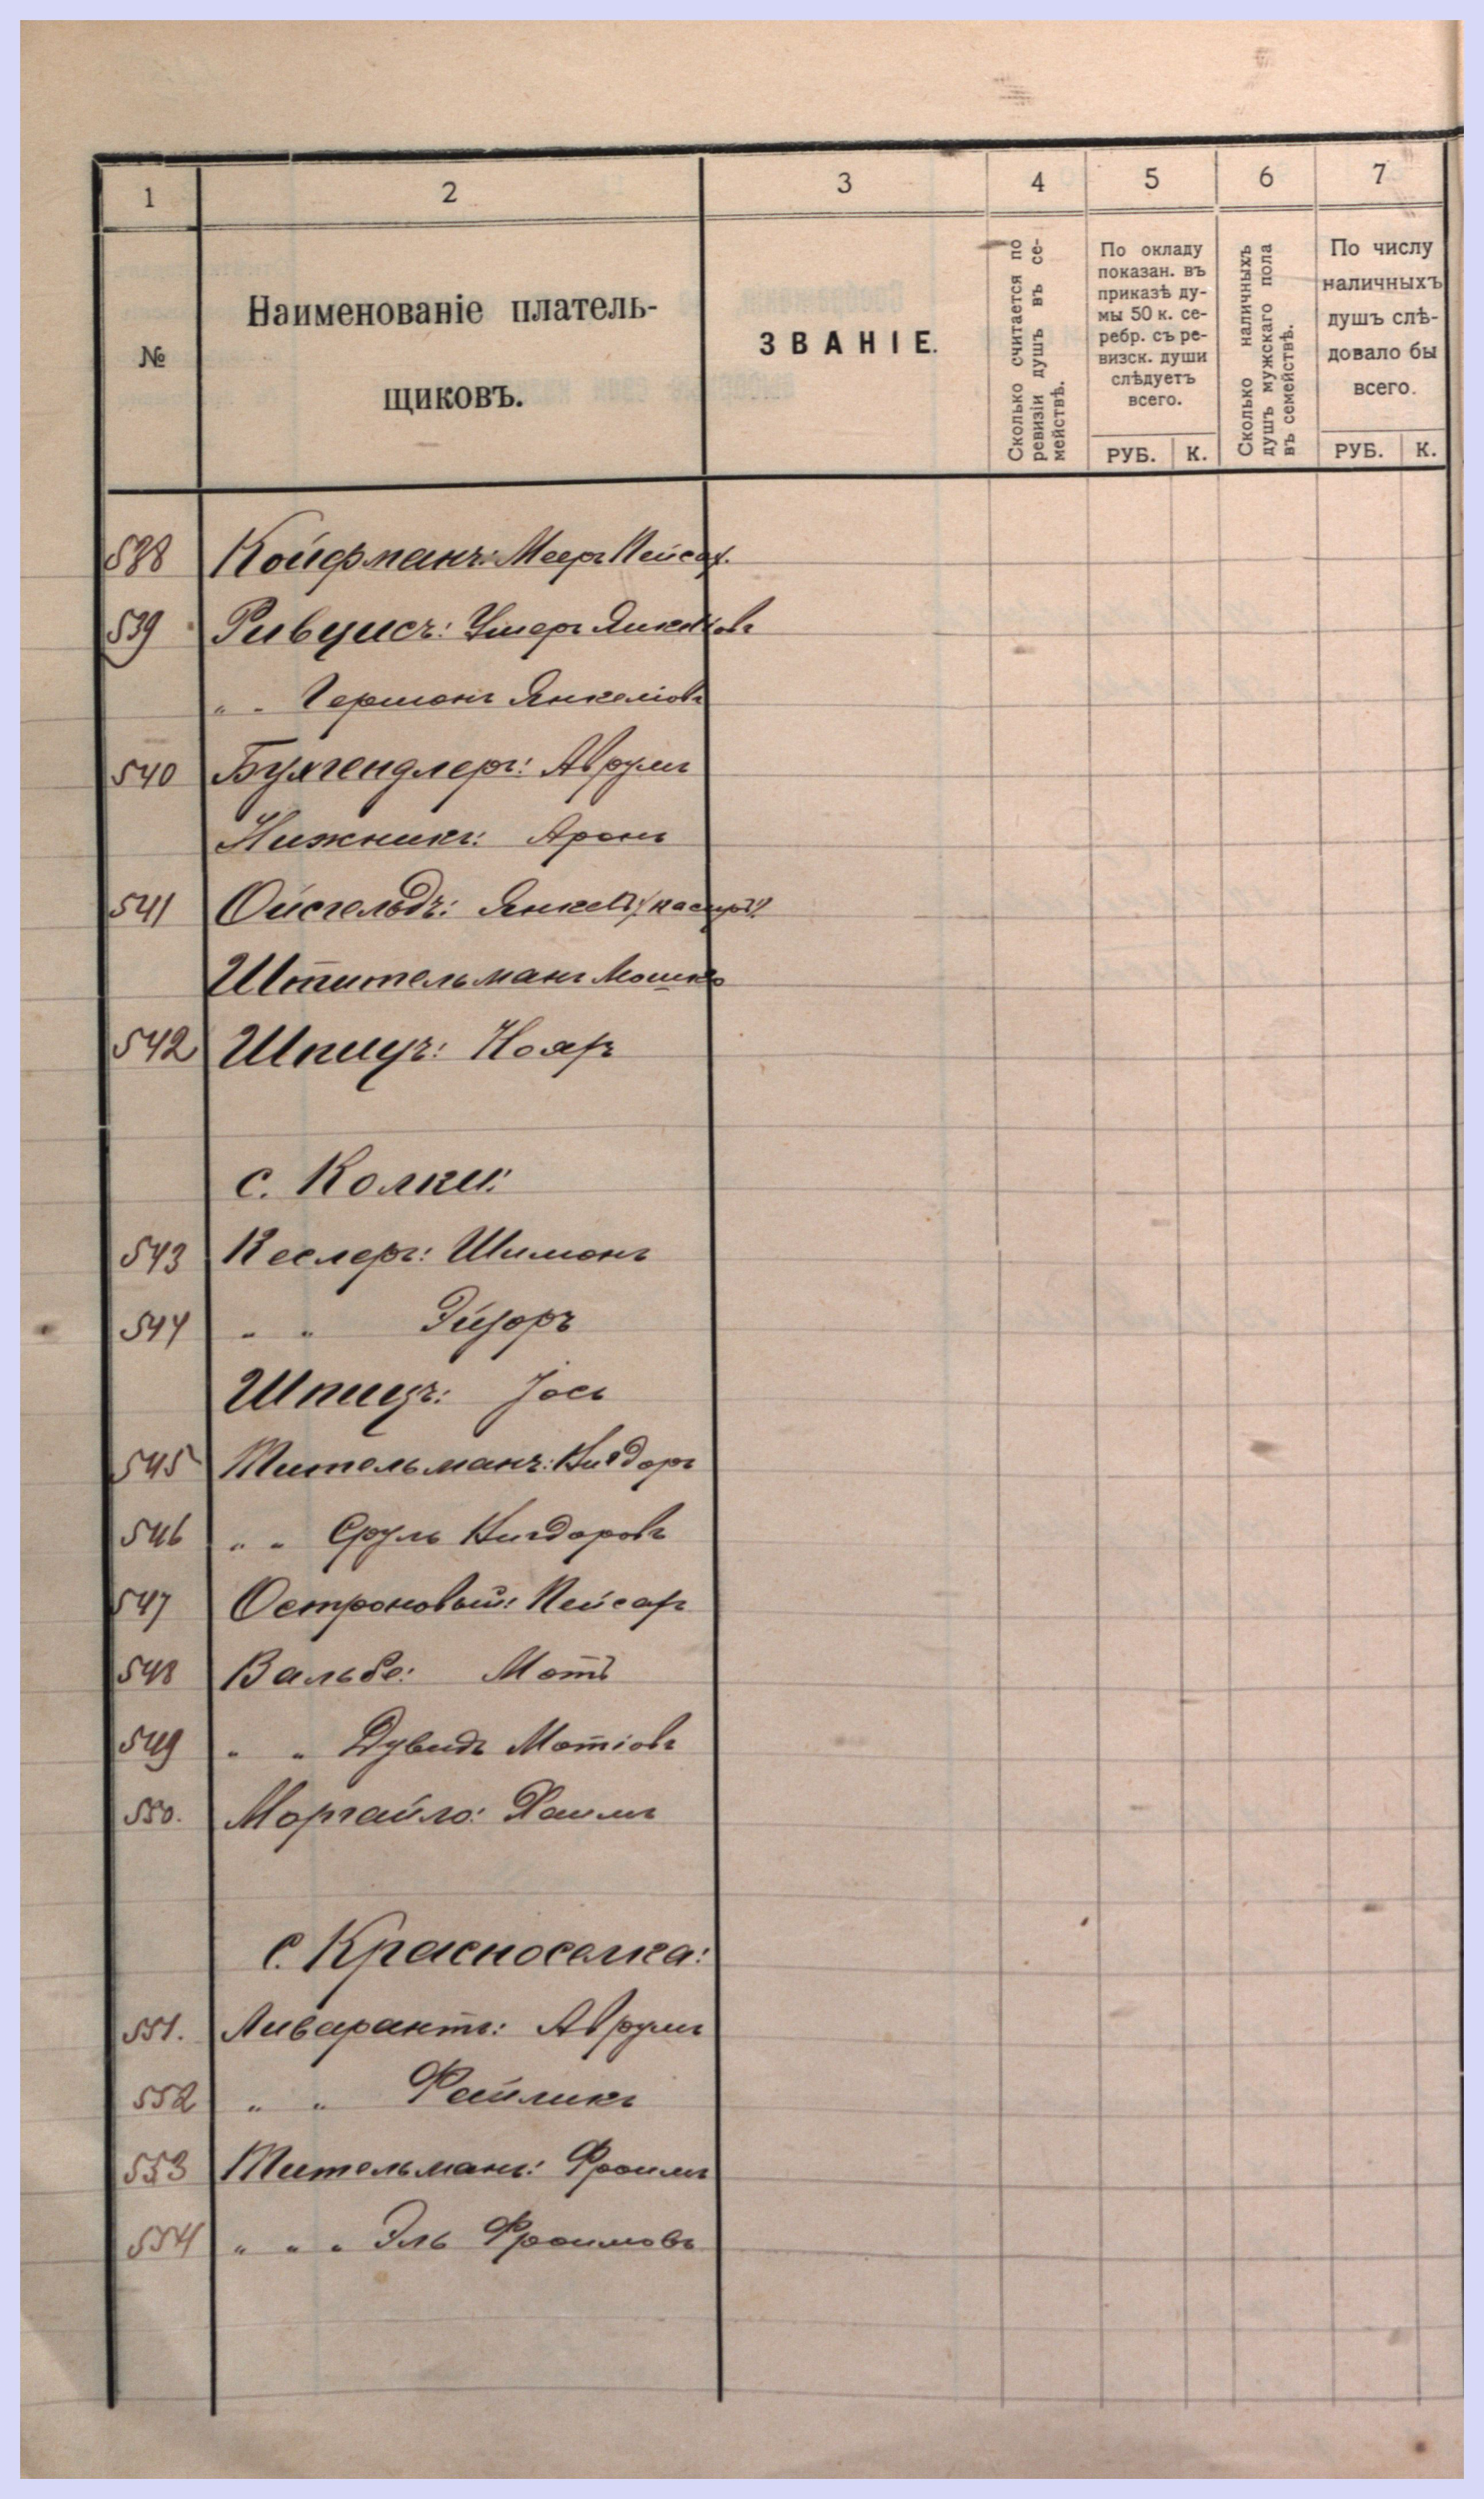 1 2 3 4 5 6 7
№
Наименованіе платель-
щиковъ.
ЗВАНІЕ.
Сколько считается по
ревизіи душъ въ се-
мействѣ.
По окладу
показан. въ
приказѣ ду-
мы 50 к. се-
ребр. съ ре-
визск. души
слѣдуетъ
всего.
РУБ. К.
Сколько наличныхъ
душъ мужскаго пола
въ семействѣ.
По числу
наличныхъ
душъ слѣ-
довало бы
всего.
РУБ. К.
538 Койфманъ: Мееръ Пейсах.
539 Ривцисъ: Ушеръ Янкелiовъ
" " Гершонъ Янкеліовъ
540 Бухгендлеръ: Аврумъ
Нижникъ: Аронъ
541 Ойсгельдъ: Янкель
Штительманъ Мошко
542 Шпицъ: Нояхъ
с. Колки:
543 Кеслеръ: Шимонъ
544 " " Эйзоръ
Шпицъ: Іось
545 Тительманъ: Кигдоръ
546 " " Сруль Кигдоровъ
547 Остроновый: Пейсахъ
548 Вальбе: Моть
549 " " Дувидъ Мотіовъ
550. Моргайло: Хаимъ
с. Красноселка:
551. Ливарантъ: Аврумъ
552 " " Файликъ
553 Тительманъ: Фроимъ
554 " " " Эль Фроимовъ